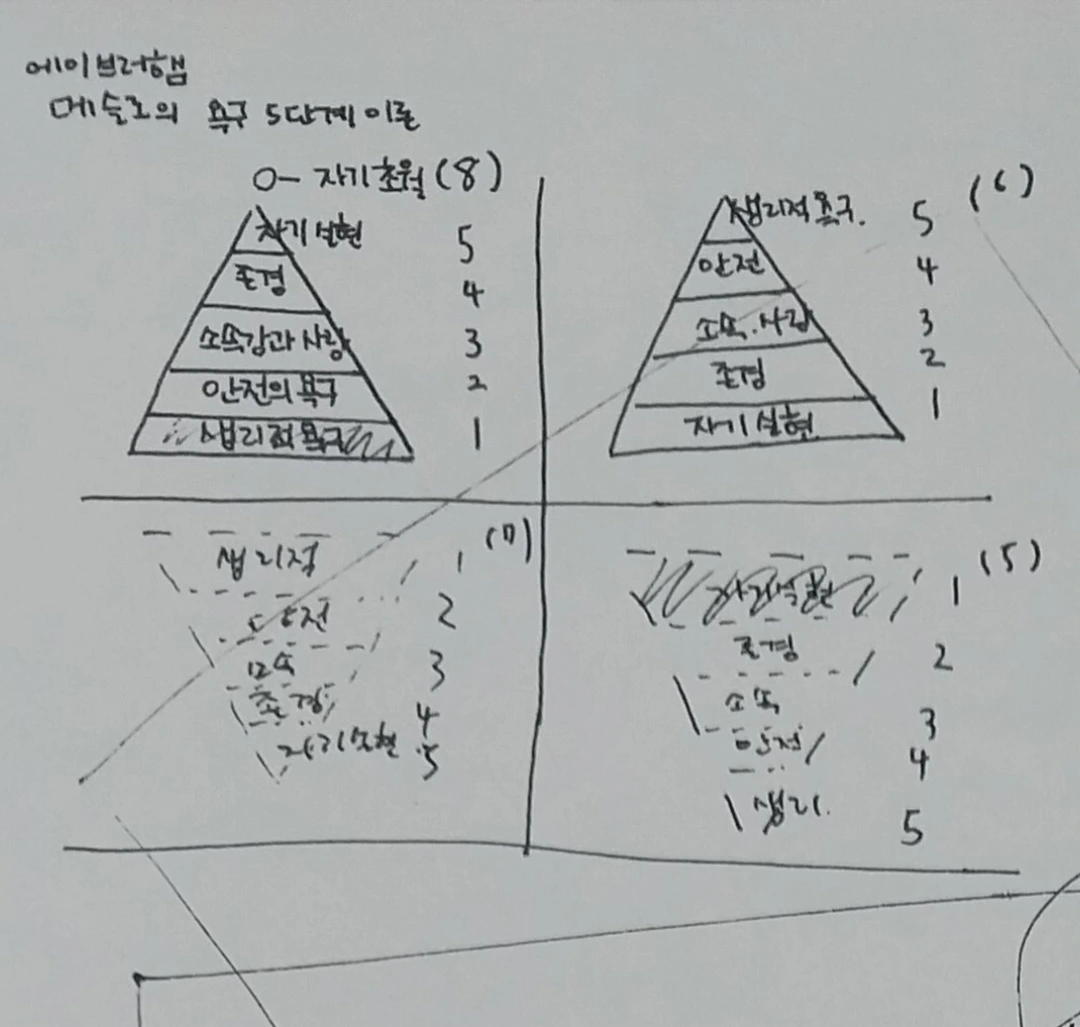 에이브러햄
메슬로의 욕구 5단계 이론
0- 자기초월 (8)
자기실현 5
존경 4
소속감과 사랑 3
안전의 욕구 2
생리적 욕구 1
(6)
생리적 욕구. 5
안전 4
소속.사랑 3
존경 2
자기실현 1
(7)
생리적 1
안전 2
소속 3
존경 4
자기실현 5
(5)
자기실현 1
존경 2
소속 3
안전 4
생리. 5